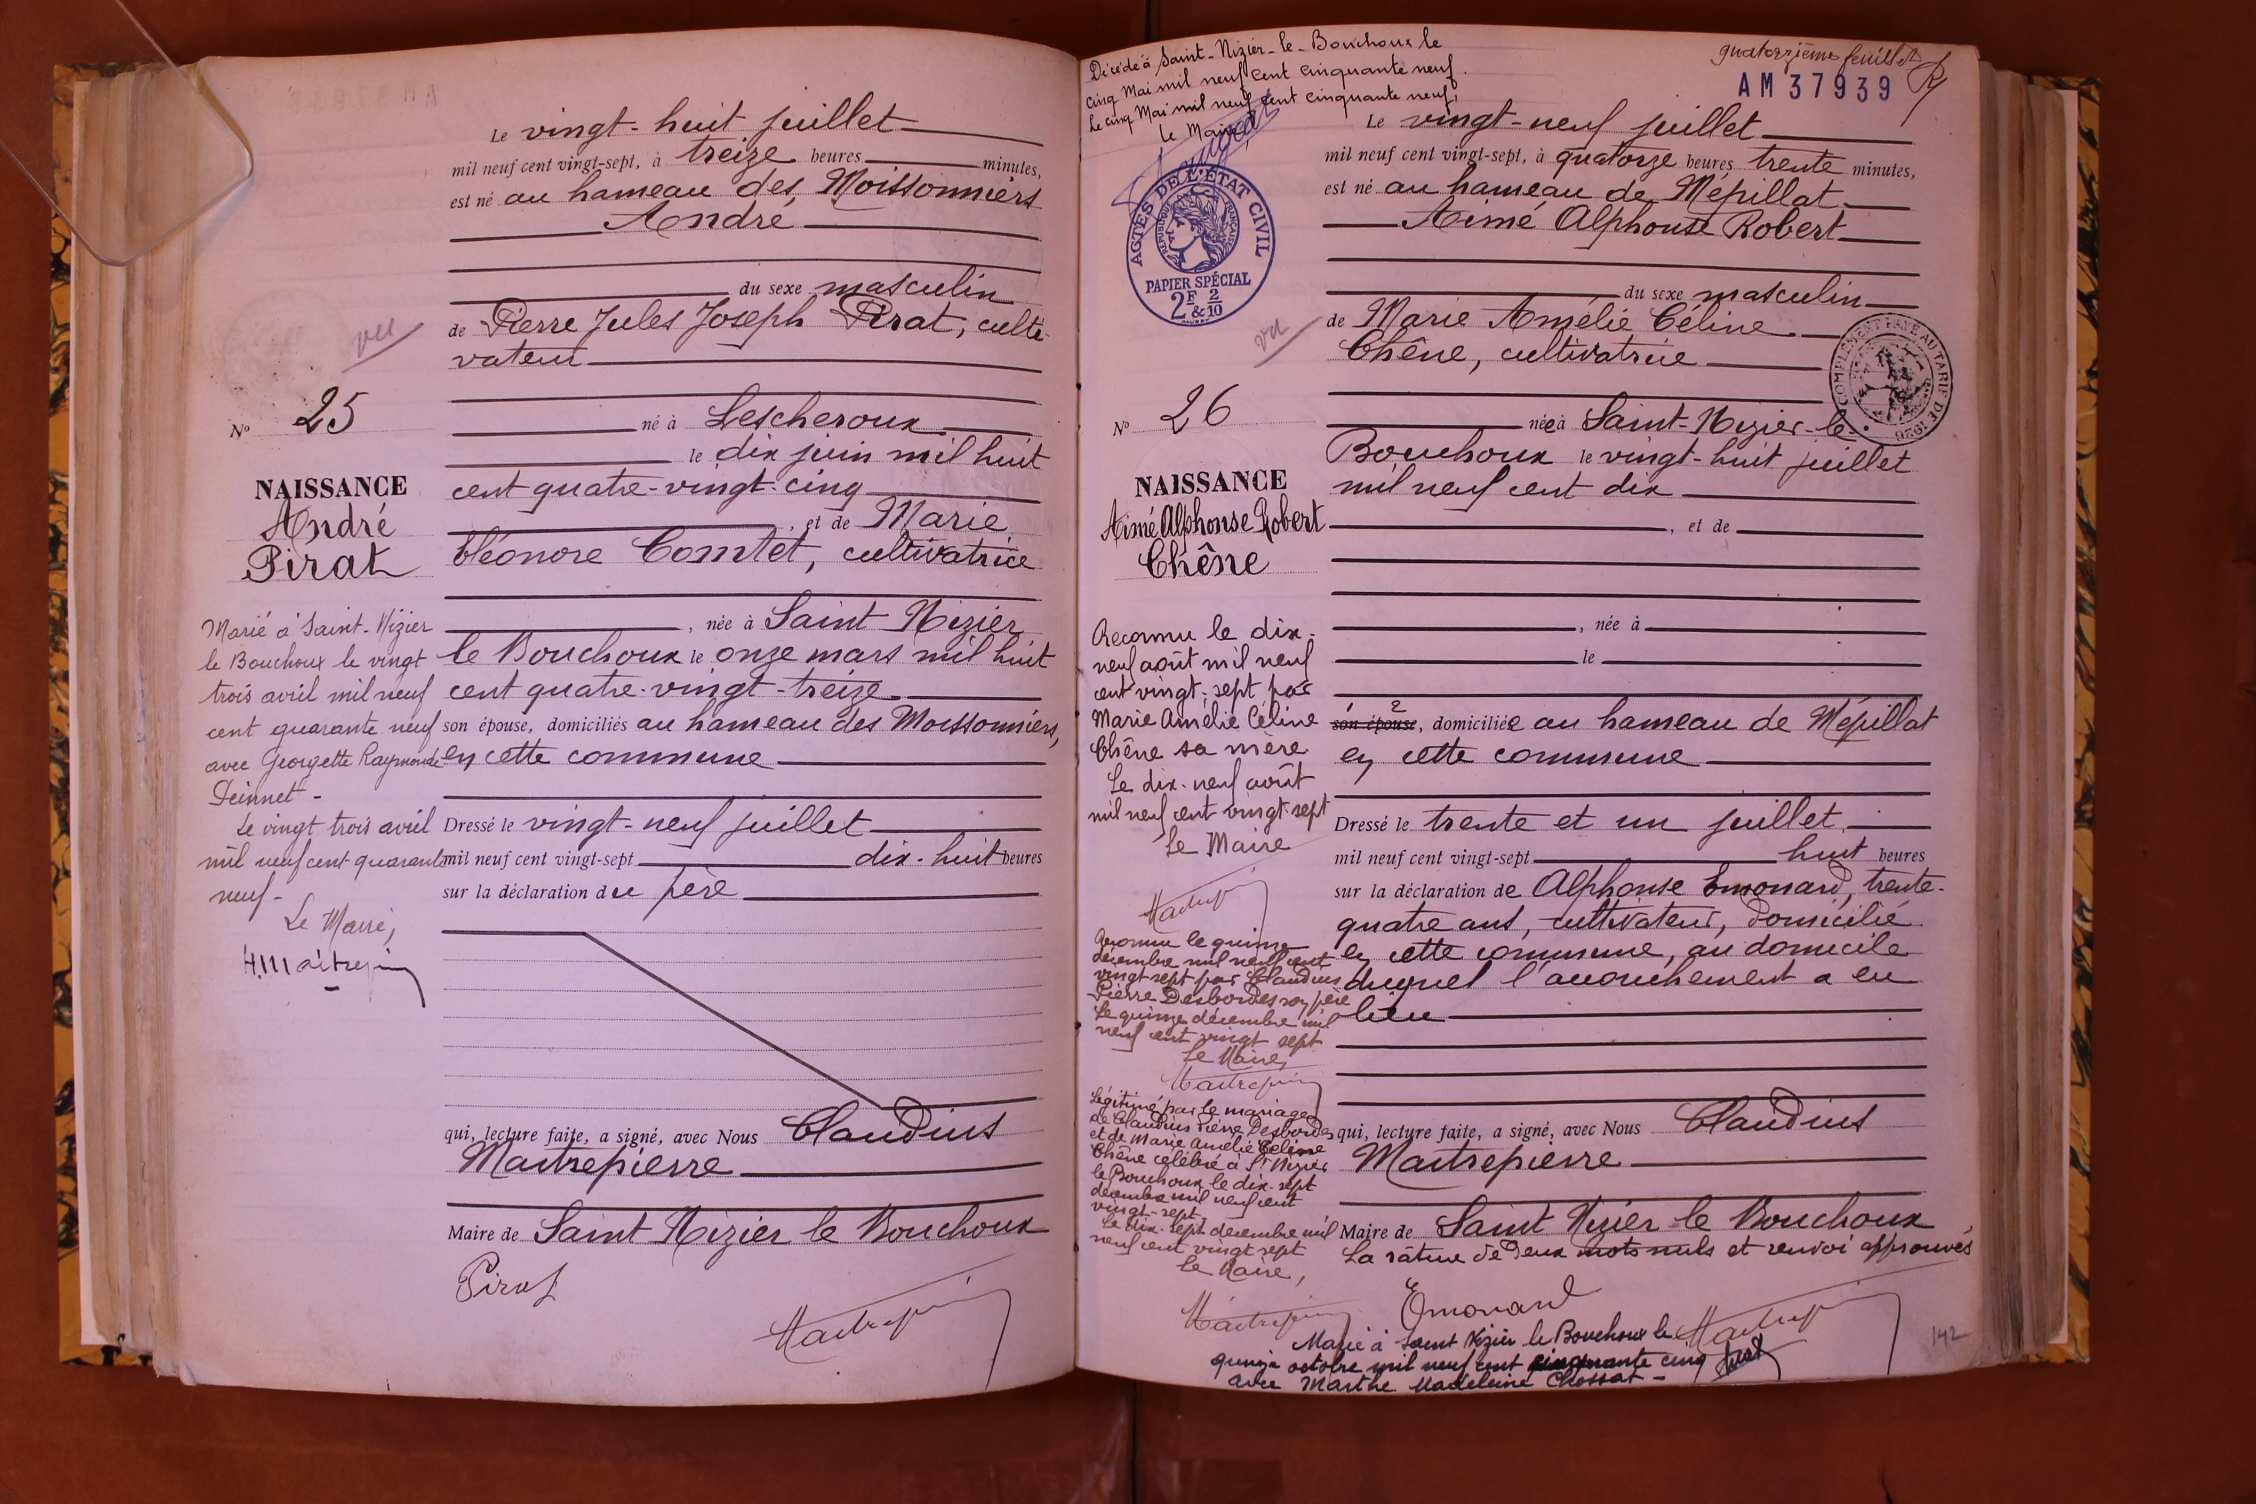 Le vingt-huit juillet
mil neuf cent vingt-sept, à treize heures minutes,
est né au hameau des Moissonniers
André
du sexe masculin
de Pierre Jules Joseph Pirat, culti-
vateur
né à Lescheroux
le dix juin mil huit
cent quatre-vingt-cinq
, et de Marie
Eléonore Comtet, cultivatrice
, née à Saint Nizier
le Bouchoux le onze mars mil huit
cent quatre-vingt-treize
son épouse, domiciliés au hameau des Moissonniers,
en cette commune
Dressé le vingt-neuf juillet
mil neuf cent vingt-sept dix-huit heures
sur la déclaration du père
qui, lecture faite, a signé, avec Nous Claudius
Maitrepierre
Maire de Saint Nizier le Bouchoux
Pirat
vu
N° 25
NAISSANCE
André
Pirat
Marié à Saint-Nizier
le Bouchoux le vingt
trois avril mil neuf
cent quarante neuf
avec Georgette Raymonde
Le vingt trois avril
mil neuf cent quarante
neuf-
Le Maire,
Décédé à Saint-Nizier-le-Bouchoux le
cinq Mai mil neuf cent cinquante neuf.
Le cinq Mai mil neuf cent cinquante neuf,
le Maire,
ACTES DE L'ÉTAT CIVIL
RÉPUBLIQUE FRANÇAISE
PAPIER SPÉCIAL
2F & 2/10
quatorzième feuillet
AM 37939
Le vingt-neuf juillet
mil neuf cent vingt-sept, à quatorze heures trente minutes,
est né au hameau de Mépillat
Aimé Alphonse Robert
du sexe masculin
de Marie Amélie Céline
Chêne, cultivatrice
COMPLÉMENT PAYÉ AU TARIF DE 1926
née à Saint-Nizier-le
Bouchoux le vingt-huit juillet
mil neuf cent dix
, et de
, née à
le
son épouse, domiciliée au hameau de Mépillat
en cette commune
Dressé le trente et un juillet
mil neuf cent vingt-sept huit heures
sur la déclaration de Alphonse Emonard, trente-
quatre ans, cultivateur, domicilié
en cette commune, au domicile
duquel l'accouchement a eu
lieu
qui, lecture faite, a signé, avec Nous Claudius
Maitrepierre
Maire de Saint Nizier le Bouchoux
La rature de deux mots nuls et renvoi approuvés
Emonard
vu
N° 26
NAISSANCE
Aimé Alphonse Robert
Chêne
Reconnu le dix-
neuf août mil neuf
cent vingt-sept par
Marie Amélie Céline
Chêne sa mère
Le dix-neuf août
mil neuf cent vingt-sept
Le Maire
Reconnu le quinze
décembre mil neuf cent
vingt sept par Claudius
Pierre Desbordes son père
Le quinze décembre mil
neuf cent vingt sept
Le Maire,
Légitimé par le mariage
de Claudius Pierre Desbordes
et de Marie Amélie Céline
Chêne célébré à St Nizier
le Bouchoux le dix-sept
décembre mil neuf cent
vingt-sept
Le dix-sept décembre mil
neuf cent vingt sept
Le Maire,
Marié à Saint Nizier le Bouchoux le
quinze octobre mil neuf cent cinquante cinq
avec Marthe Madeleine Chossat -
142